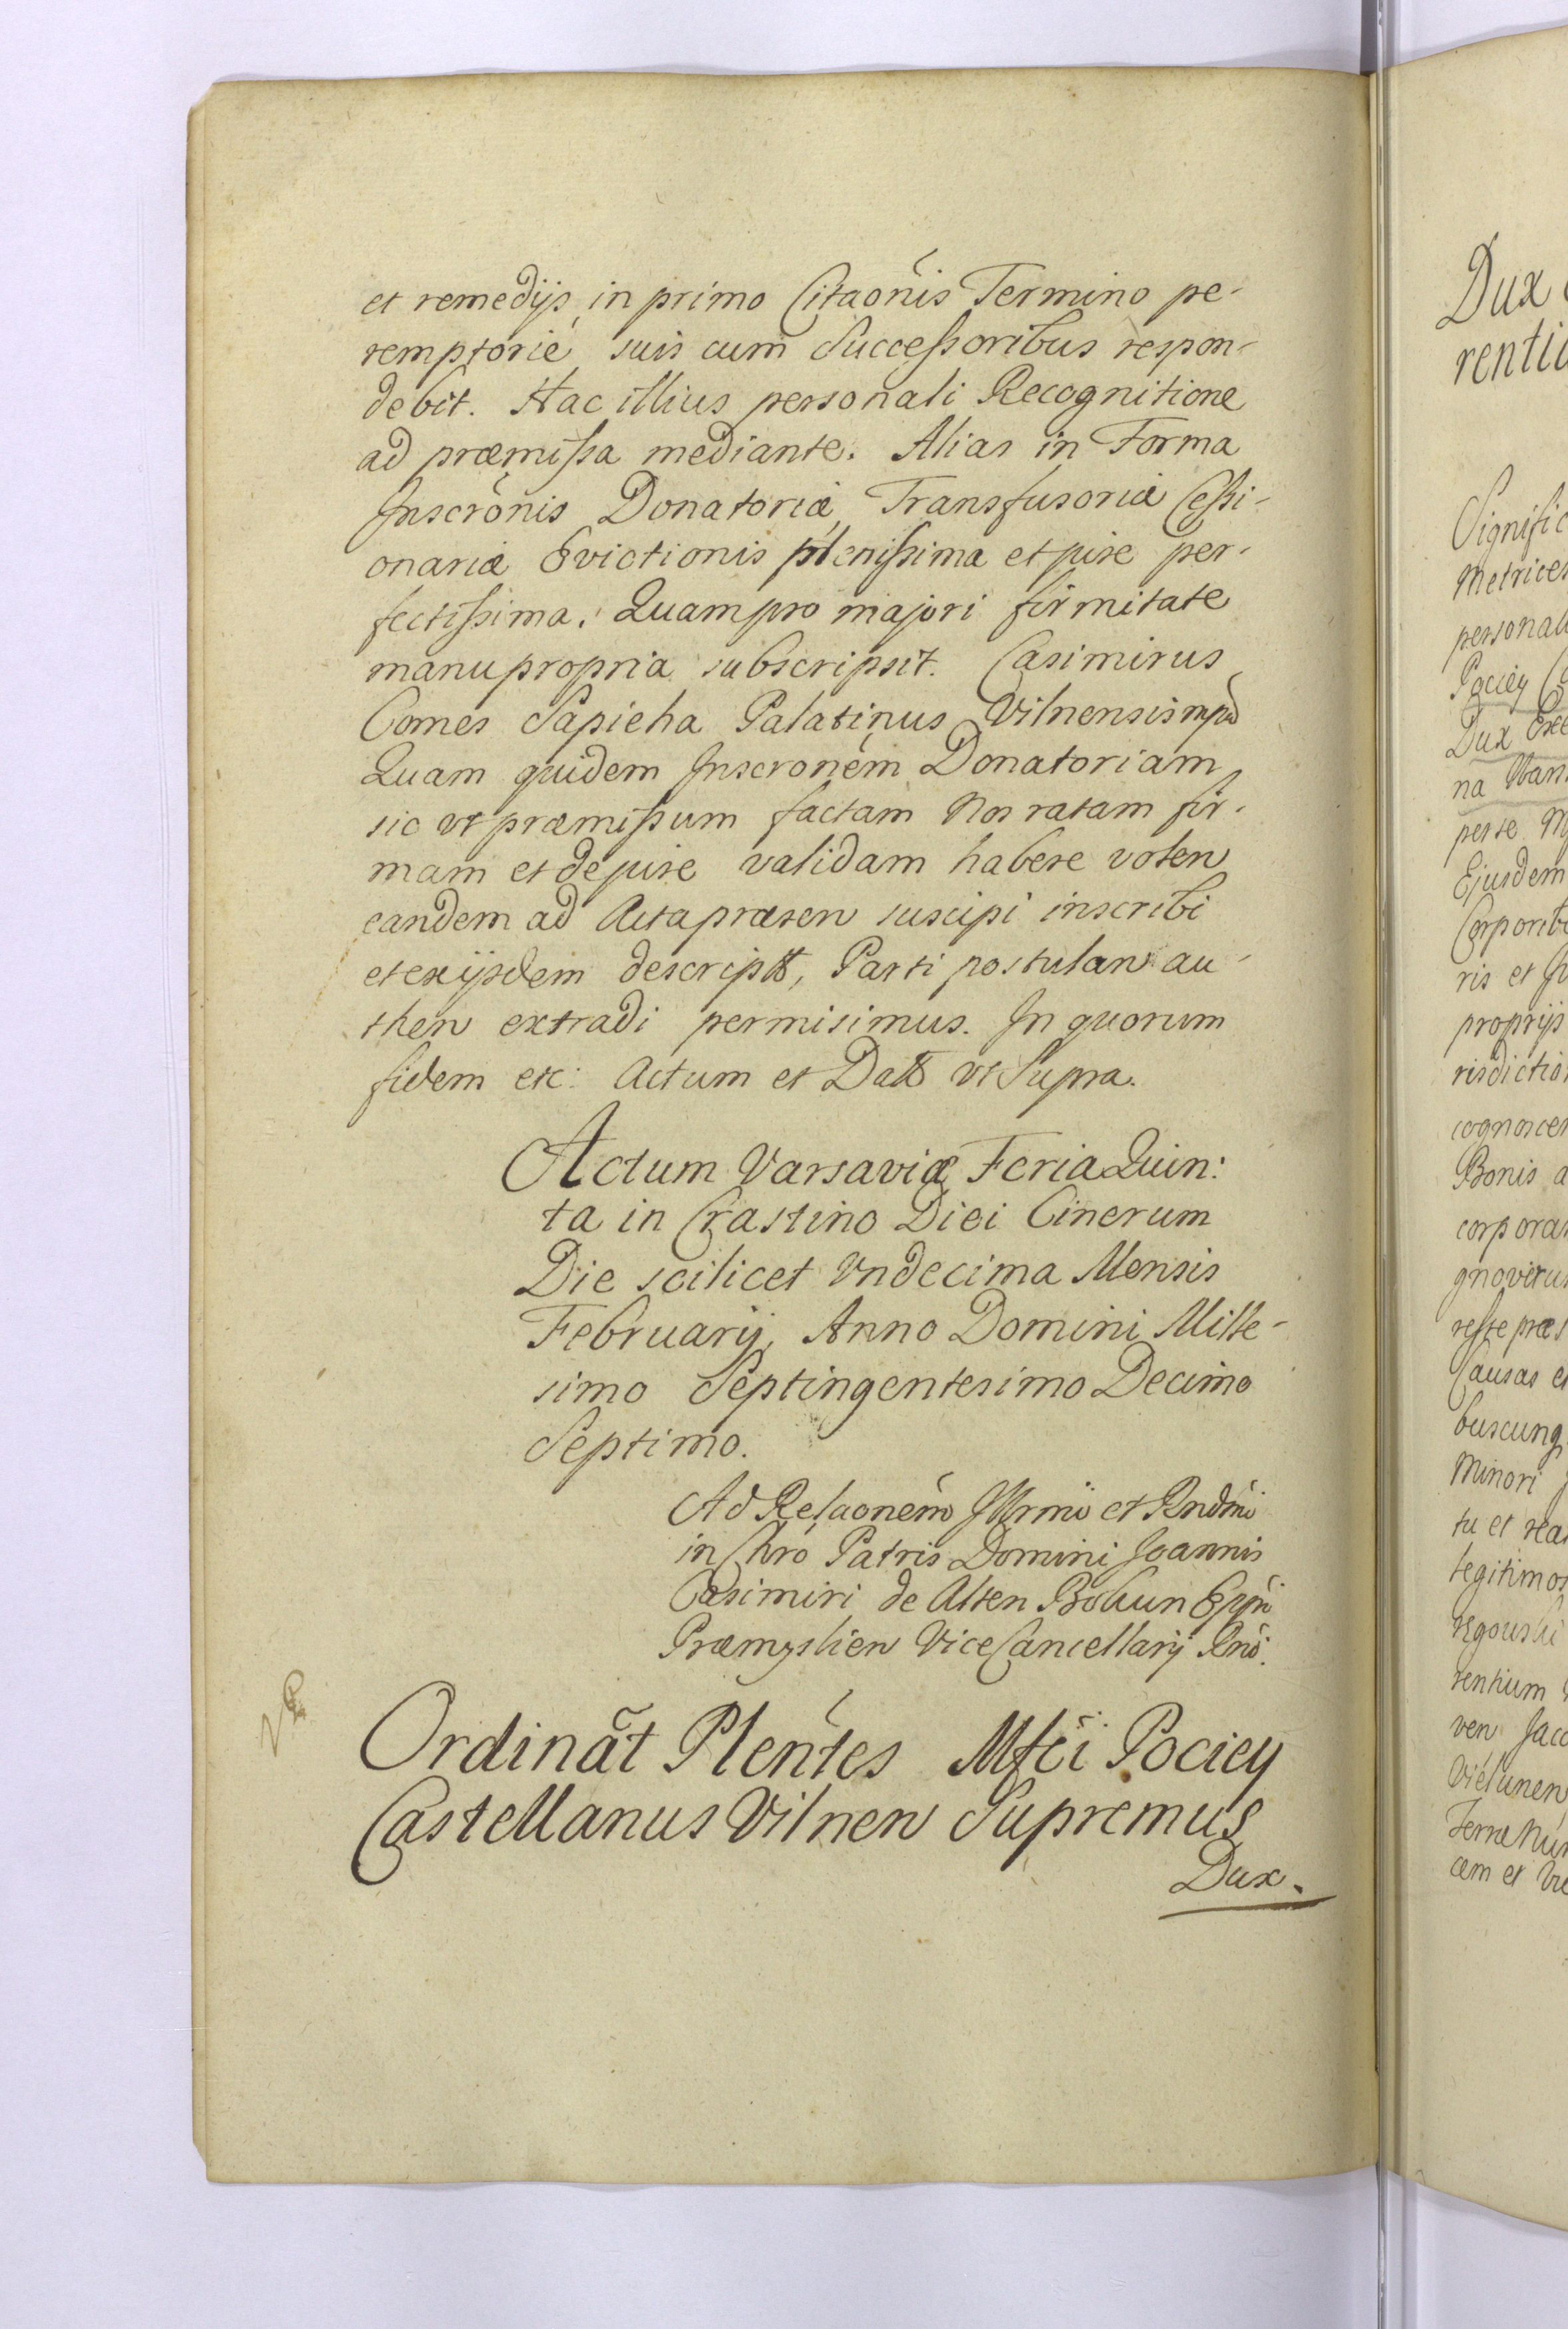 et remedijs, in primo Citaonis Termino pe-
remptorie suis cum Successoribus respon-
debit. Hac illius personali Recognitione
ad præmissa mediante. Alias in Forma
Inscronis Donatoriæ Transfusoriæ Cessi-
onariæ Evictionis plenissima et jure per-
fectissima. Quam pro majori firmitate
manu propria subscripsit. Casimirus
Comes Sapieha Palatinus Vilnensis mpd
Quam quidem Inscronem Donatoriam
sic vt præmissum factam Nos ratam fir-
mam et de jure validam habere volen
eandem ad Acta præsen suscipi inscribi
et ex ijsdem descript, Parti postulan au-
then extradi permisimus. In quorum
fidem etc: Actum et Datt vt Supra.
Actum Varsaviæ Feria Quin:
ta in Crastino Diei Cinerum
Die scilicet Vndecima Mensis
Februarij, Anno Domini Mille-
simo Septingentesimo Decimo
Septimo.
Ad Relaonem Illrmi et Rndmi
in Chro Patris Domini Joannis
Casimiri de Alten Bokun Eppi
Præmyslien Vice Cancellarij Rni.
Ordinat Plentes Mfci Pociey
Castellanus Vilnen Supremus
Dux.
Dux
Signific
Metrices
personali
Pociey
Dux
na
perse
Ejusdem
Corporib
ris et
proprijs
risdictio
cognoscen
Bonis a
corpora
gnoveru
reste præs
Causas e
buscunq
Minori
tu et rea
legitimos
rentium
ven Jaco
Vielunen
Terræ Nur
cem et